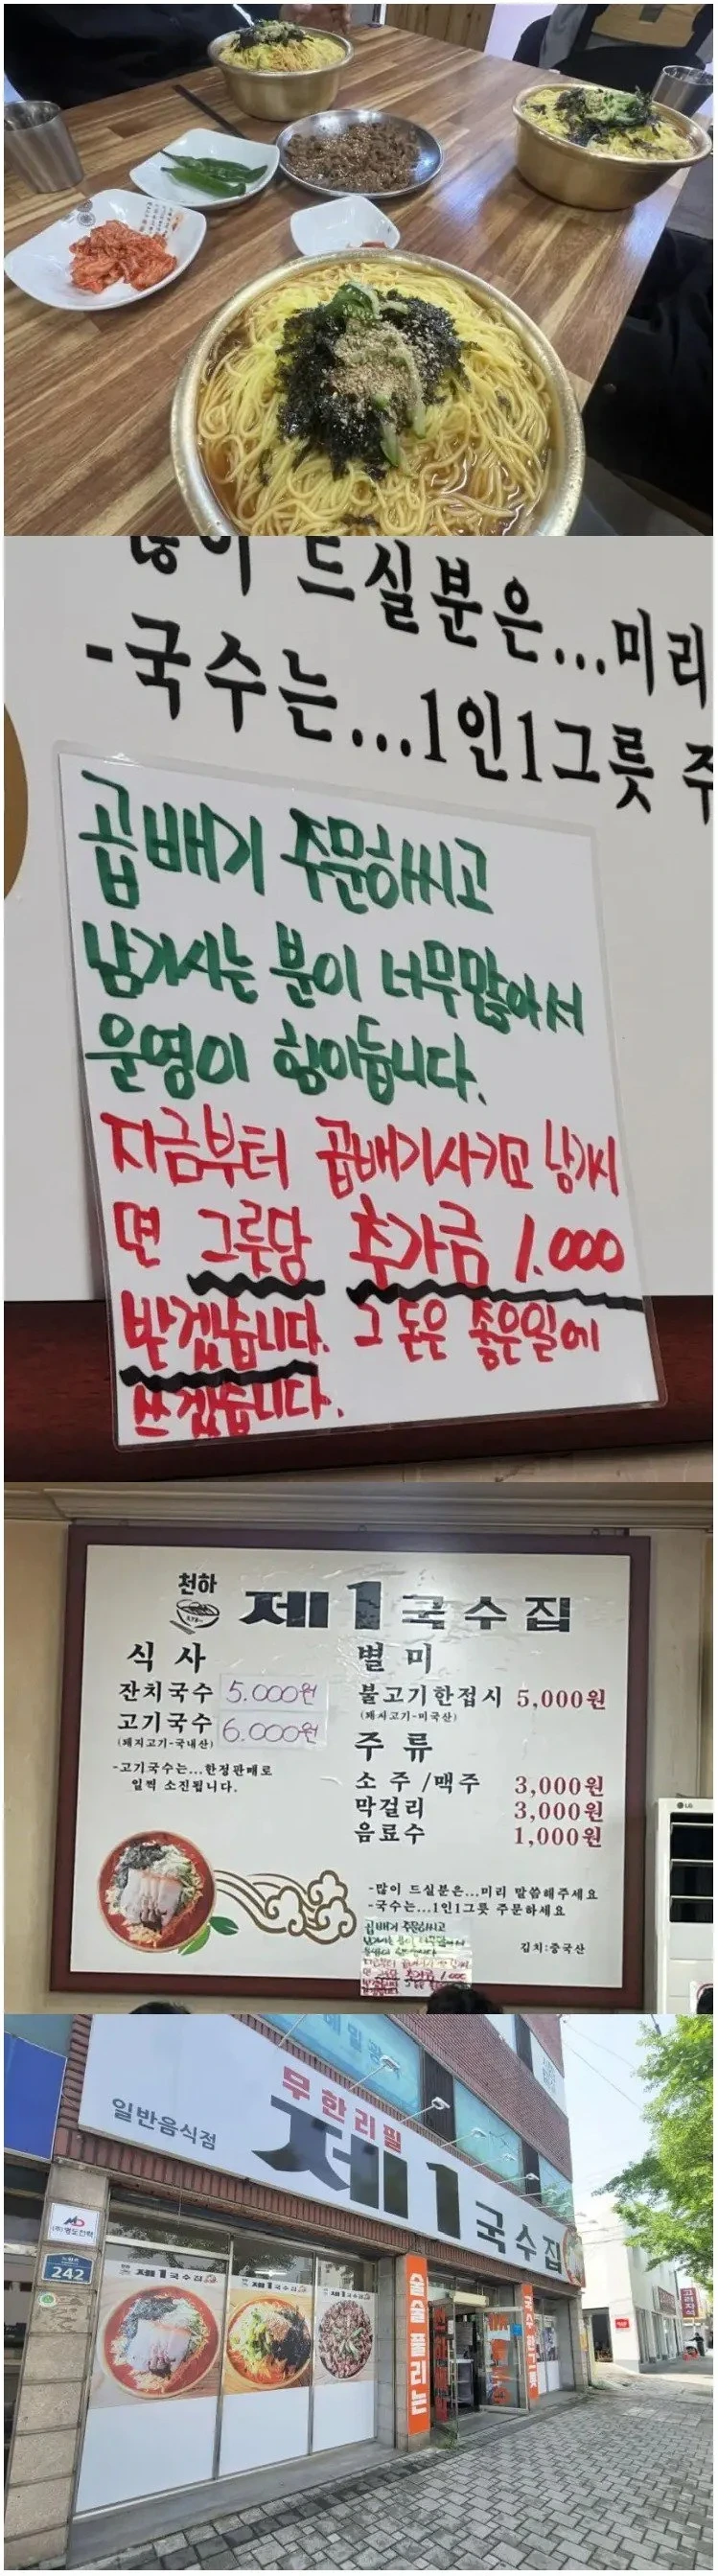 많이 드실분은...미리
-국수는...1인1그릇 주
곱배기 주문하씨고
남가시는 분이 너무많아서
운영이 힘이듭니다.
지금부터 곱배기시키고 남가시
면 그릇당 추가금 1.000
받겠습니다. 그 돈은 좋은일에
쓰겠습니다.
천하
제1국수집
식 사
잔치국수 5.000원
고기국수 6.000원
(돼지고기-국내산)
-고기국수는...한정판매로
일찍 소진됩니다.
별 미
불고기한접시 5,000원
(돼지고기-미국산)
주 류
소 주 /맥주 3,000원
막걸리 3,000원
음료수 1,000원
-많이 드실분은...미리 말씀해주세요
-국수는...1인1그릇 주문하세요
곱배기 주문하씨고
남가시는 분이 너무많아서
운영이 힘이듭니다.
지금부터 곱배기시키고 남가시
면 그릇당 추가금 1.000
김치:중국산
LG
무한리필
일반음식점
제1국수집
242
제1국수집
제1국수집
제1국수집
술술 풀리는
국수한그릇